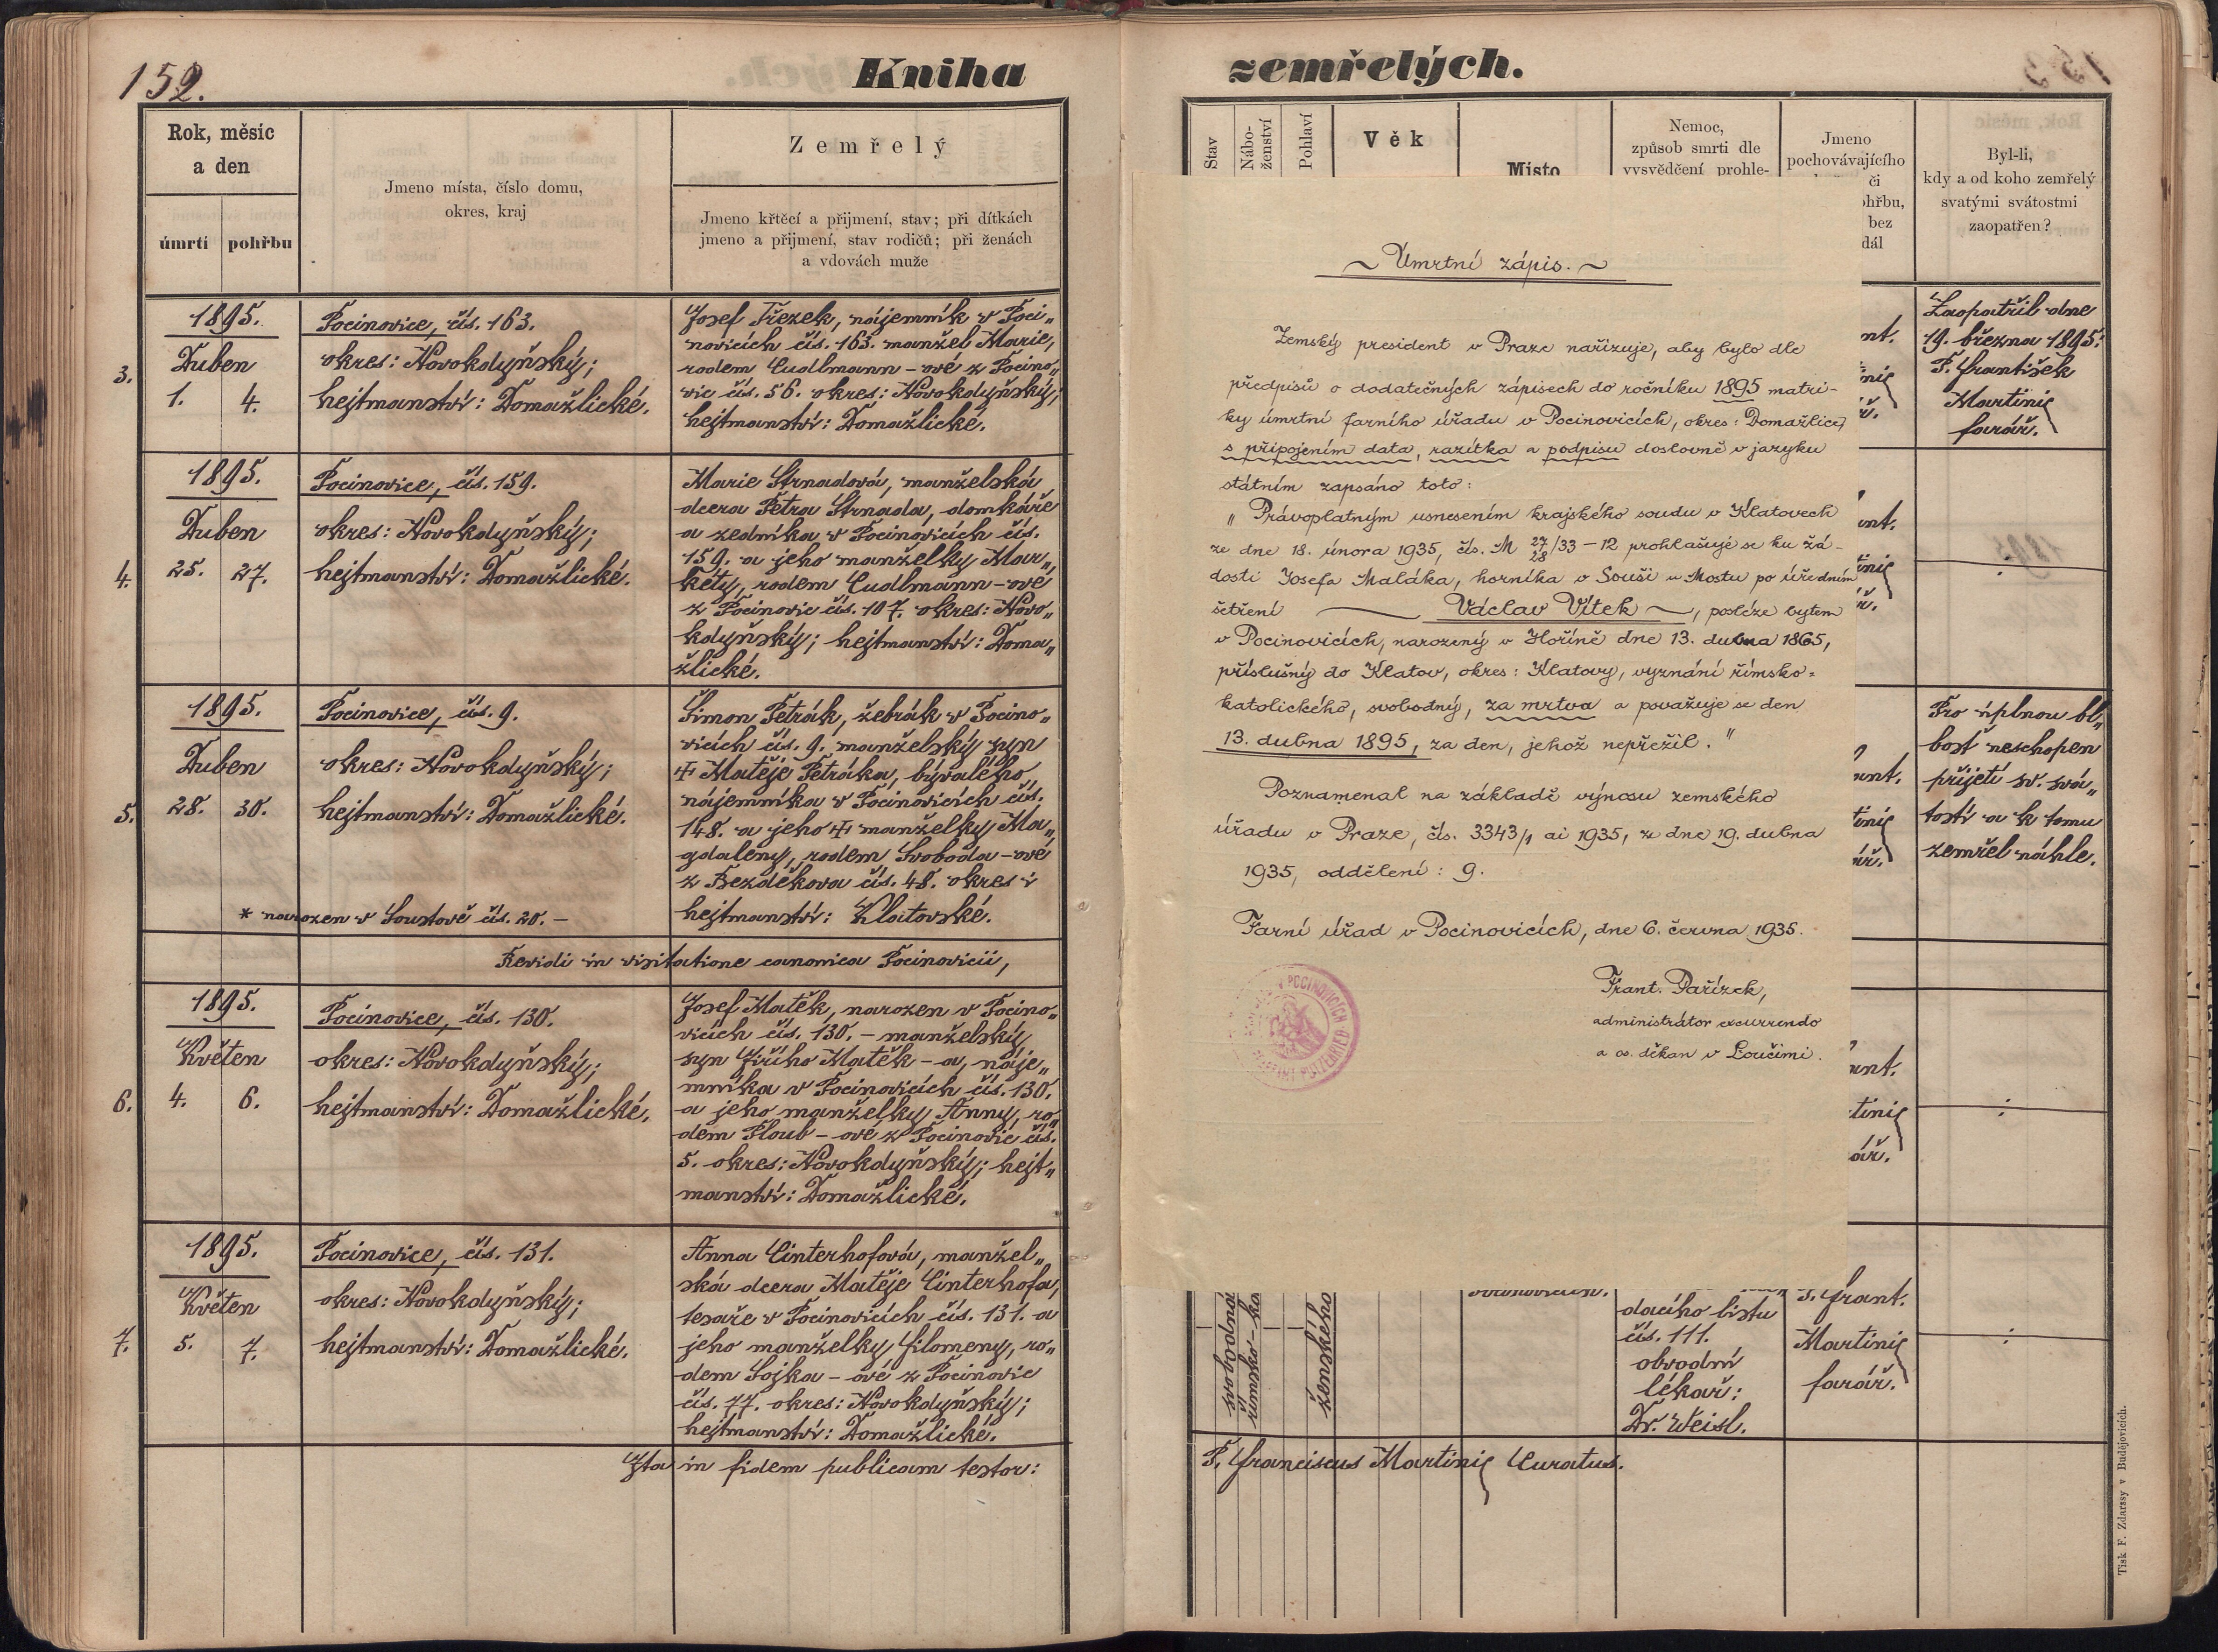 152.
Kniha
Rok, měsíc
a den
úmrtí
pohřbu
Jmeno místa, číslo domu,
okres, kraj
Zemřelý
Jmeno křtěcí a přijmení, stav; při dítkách
jmeno a přijmení, stav rodičů; při ženách
a vdovách muže
3.
1895.
Duben
1. 4.
Pocinovice, čís. 163.
okres: Novokdyňský;
hejtmanství: Domažlické.
Josef Třezek, nájemník v Poci„
novicích čís. 163. manžel Marie,
rodem Cudlmann-ové z Pocino„
vic čís. 56. okres: Novokdyňský;
hejtmanství: Domažlické.
4.
1895.
Duben
25. 27.
Pocinovice, čís. 159.
okres: Novokdyňský;
hejtmanství: Domažlické.
Marie Strnadová, manželská
dcera Petra Strnada, domkáře
a zedníka v Pocinovicích čís.
159. a jeho manželky Mar„
kéty, rodem Cudlmann-ové
z Pocinovic čís. 107. okres: Novo„
kdyňský; hejtmanství: Doma„
žlické.
5.
1895.
Duben
28. 30.
Pocinovice, čís. 9.
okres: Novokdyňský;
hejtmanství: Domažlické.
* narozen v Soustově čís. 20. –
Šimon Petrák, žebrák v Pocino„
vicích čís. 9. manželský syn
✠ Matěje Petráka, bývalého
nájemníka v Pocinovicích čís.
148. a jeho ✠ manželky Ma„
gdaleny, rodem Svoboda-ové
z Bezděkova čís. 48. okres i
hejtmanství: Klatovské.
Revidi in visitatione canonica Pocinovicii,
6.
1895.
Květen
4. 6.
Pocinovice, čís. 130.
okres: Novokdyňský;
hejtmanství: Domažlické.
Josef Matěk, narozen v Pocino„
vicích čís. 130. – manželský
syn Jiřího Matěk-a, náje„
mníka v Pocinovicích čís. 130.
a jeho manželky Anny, ro„
dem Floub-ové z Pocinovic čís.
5. okres: Novokdyňský; hejt„
manství: Domažlické.
7.
1895.
Květen
5. 7.
Pocinovice, čís. 131.
okres: Novokdyňský;
hejtmanství: Domažlické.
Anna Cinterhofová, manžel„
ská dcera Matěje Cinterhofa,
tesaře v Pocinovicích čís. 131. a
jeho manželky Filomeny, ro„
dem Sojka-ové z Pocinovic
čís. 77. okres: Novokdyňský;
hejtmanství: Domažlické.
Ita in fidem publicam testor:
zemřelých.
Stav
Nábo-
ženství
Pohlaví
Věk
Místo
Nemoc,
způsob smrti dle
vysvědčení prohle-
Jmeno
pochovávajícího
či
bez
dál
Byl-li,
kdy a od koho zemřelý
svatými svátostmi
zaopatřen?
~ Úmrtní zápis. ~
Zemský president v Praze nařizuje, aby bylo dle
předpisů o dodatečných zápisech do ročníku 1895 matri-
ky úmrtní farního úřadu v Pocinovicích, okres: Domažlice,
s připojením data, razítka a podpisu doslovně v jazyku
státním zapsáno toto:
„Právoplatným usnesením krajského soudu v Klatovech
ze dne 18. února 1935, čís. M 27/28/33 – 12 prohlašuje se ku žá-
dosti Josefa Maláka, horníka v Souši u Mostu po úředním
šetření — Václav Vítek —, posléze bytem
v Pocinovicích, narozený v Hoříně dne 13. dubna 1865,
příslušný do Klatov, okres: Klatovy, vyznání římsko-
katolického, svobodný, za mrtva a považuje se den
13. dubna 1895, za den, jehož nepřežil."
Poznamenal na základě výnosu zemského
úřadu v Praze, čís. 3343/1 ai 1935, ze dne 19. dubna
1935, oddělení: 9.
Farní úřad v Pocinovicích, dne 6. června 1935.
Frant. Pařízek,
administrátor excurrendo
a os. děkan v Loučimi.
Zaopatřil dne
19. března 1895:
P. František
Martinic
farář.
Pro úplnou bl„
bost neschopen
přijetí sv. svá„
tostí a k tomu
zemřel náhle.
svobodná
římsko-ka
ženského
dacího listu
čís. 111.
obvodní
lékař:
Dr. Weisl.
P. Frant.
Martinic
farář.
P. Franciscus Martinic Curatus.
Tisk F. Zdarssy v Budějovicích.